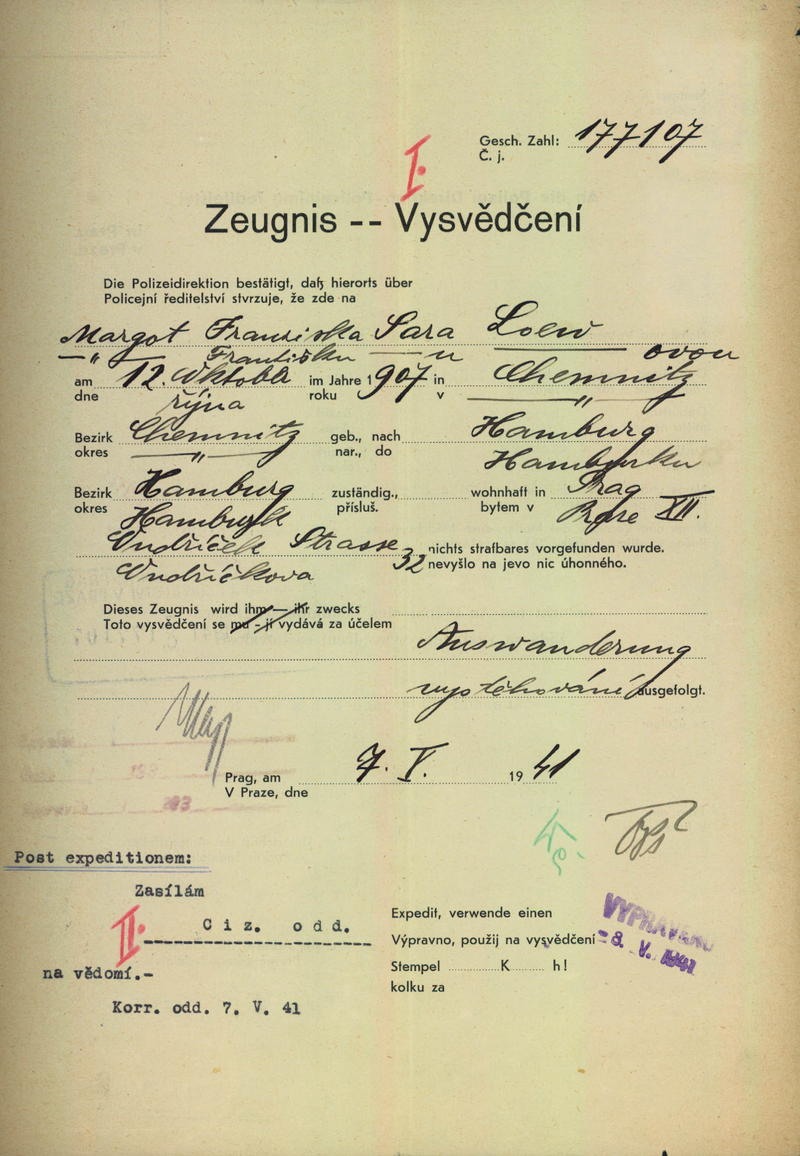 Gesch. Zahl: 177107
Č. j.
I.
Zeugnis -- Vysvědčení
Die Polizeidirektion bestätigt, daß hierorts über
Policejní ředitelství stvrzuje, že zde na
Margot Franziska Sara Loew
— " — Františku — " — ovou
am 12. Oktober im Jahre 1907 in Chemnitz
dne října roku v — " —
Bezirk Chemnitz geb., nach Hamburg
okres — " — nar., do Hamburku
Bezirk Hamburg zuständig., wohnhaft in Prag
okres Hamburk přísluš. bytem v Praze XII.
Ondříček Strasse 32 nichts strafbares vorgefunden wurde.
Ondříčkova nevyšlo na jevo nic úhonného.
Dieses Zeugnis wird ihm — ihr zwecks
Toto vysvědčení se mu - jí vydává za účelem
Auswanderung
vystěhování ausgefolgt.
Prag, am 7. V. 1941
V Praze, dne
Post expeditionem:
Zasílám
II. Ciz. odd.
na vědomí.-
Korr. odd. 7. V. 41
Expedit, verwende einen
Výpravno, použij na vysvědčení
Stempel K h!
kolku za
VYPRAVENO
- 8. V. 1941